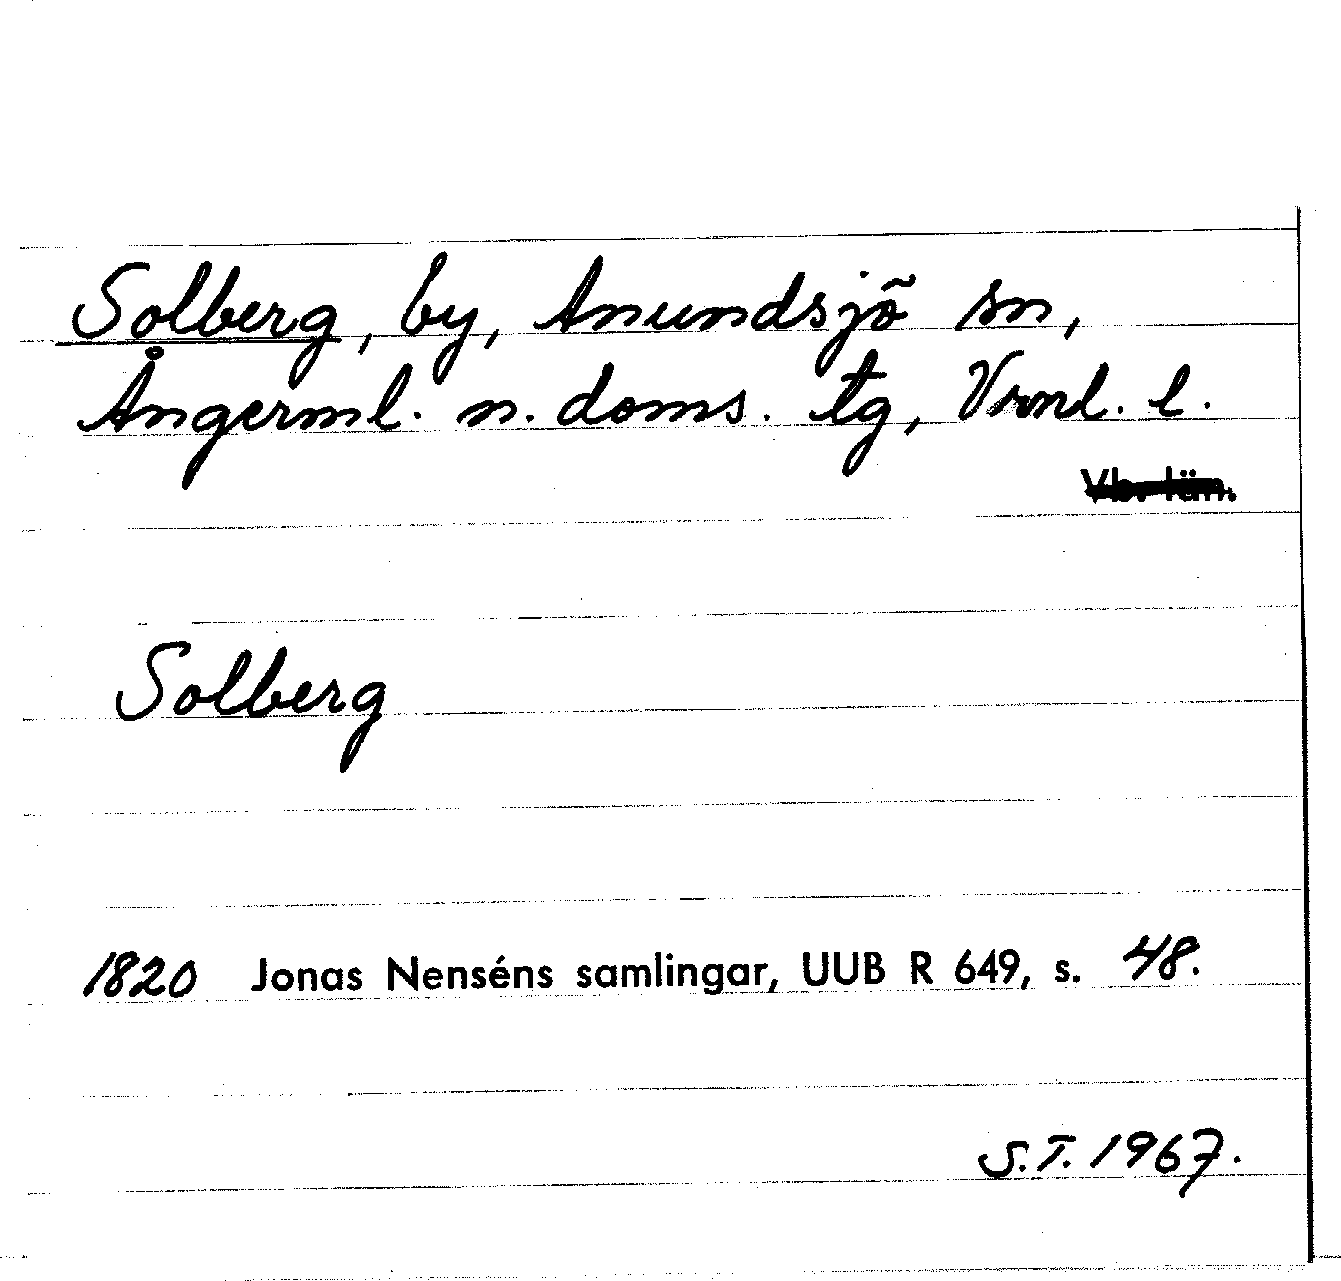 Solberg, by, Anundsjö sn,
Ångerml. n. doms. tg, Vrnl. l.
Vb. län.
Solberg
1820 Jonas Nenséns samlingar, UUB R 649, s. 48.
S.T. 1967.